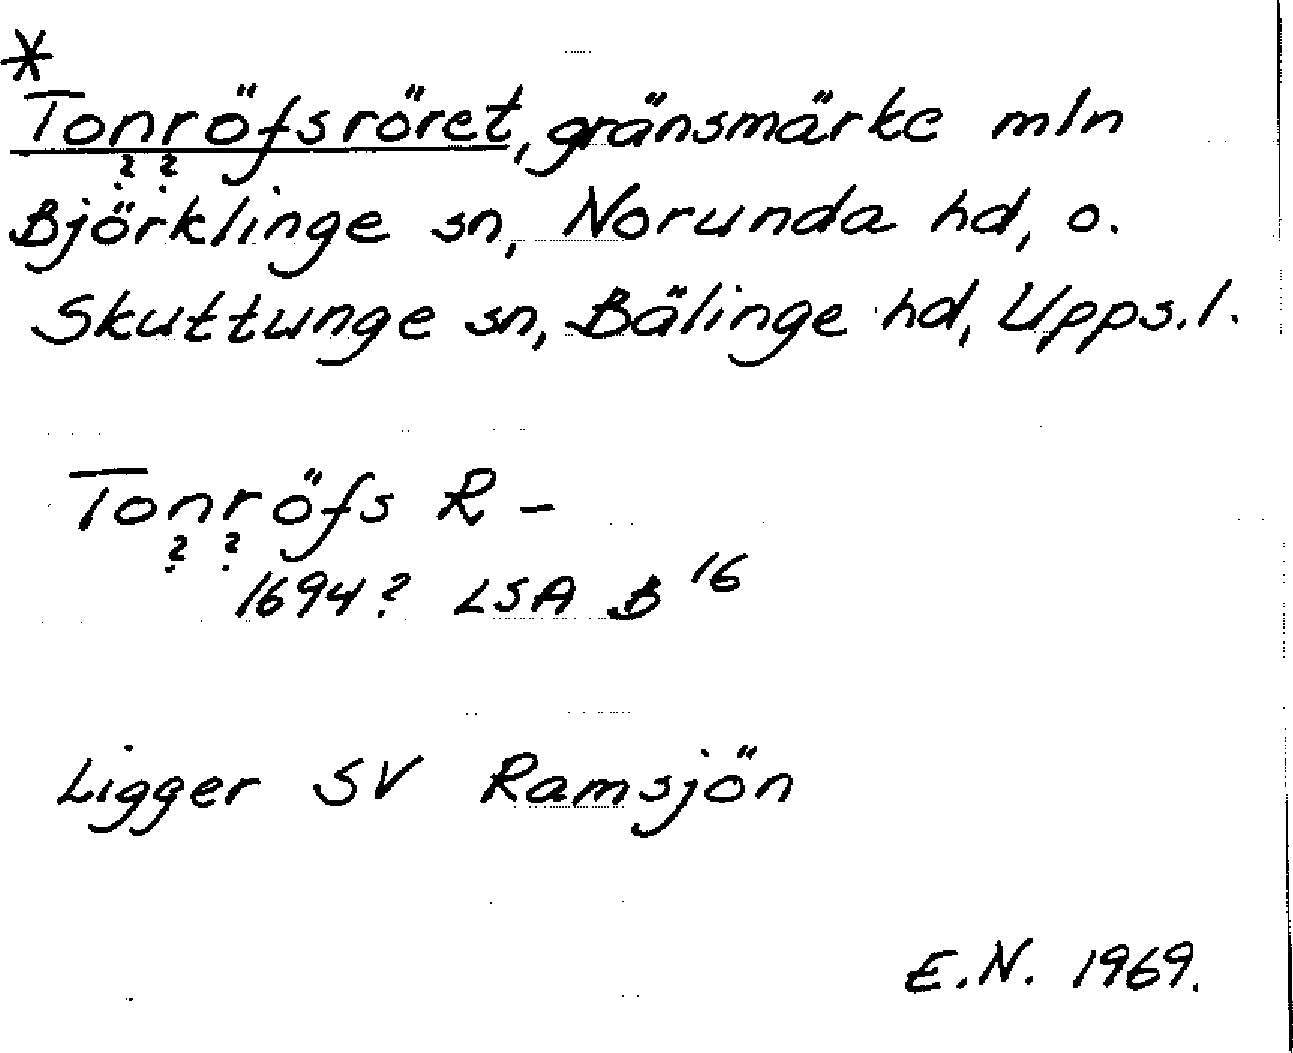 *
Tonröfsröret, gränsmärke mln
? ?
Björklinge sn, Norunda hd, o.
Skuttunge sn, Bälinge hd, Upps.l.
Tonröfs R -
? ?
1694? LSA B 16
Ligger SV Ramsjön
E.N. 1969.